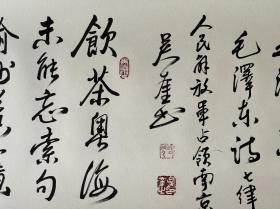 毛澤东诗七律
人民解放軍占領南京
飲茶粤海
未能忘索句
渝州